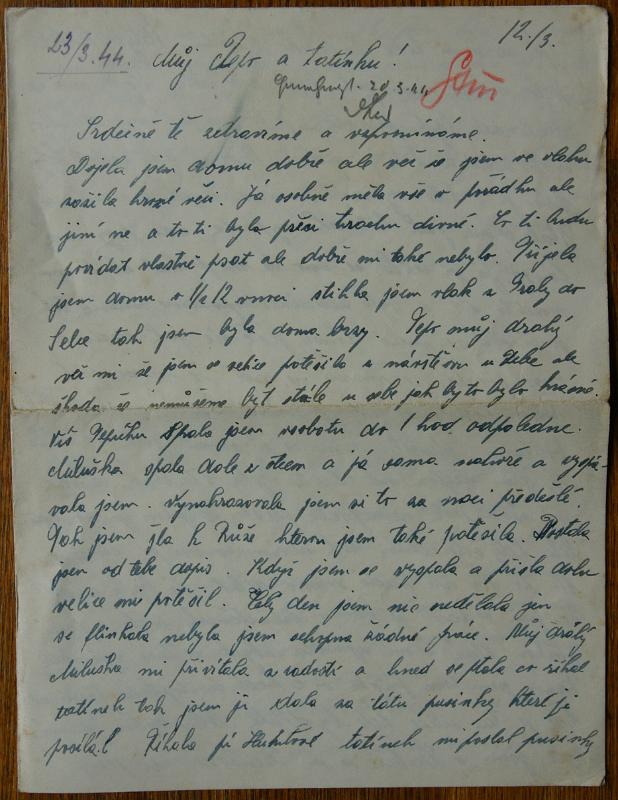 23/3.44. 12./3.
Můj Pepo a tatínku!
20 3.44
Srdečně tě zdravíme a vzpomínáme.
Dojela jsem domu dobře ale věř že jsem ve vlaku
zažila hrozné věci. Já osobně měla vše v pořádku ale
jiní ne a to ti byla přeci trochu divné. Co ti budu
povídat vlastně psat ale dobře mi také nebylo. Přijela
jsem domu o 1/2 12 v noci stihla jsem vlak z Prahy do
tak jsem byla doma brzy. Pepo můj drahý
věř mi že jsem se velice potěšila z návštěvou u Tebe ale
škoda že nemůžeme být stále u sebe jak by to bylo krásné.
Víš Pepíčku Spala jsem v sobotu do 1 hod. odpoledne.
Miluška spala dole z otcem a já sama nahoře a vyspá-
vala jsem. Vynahrazovala jsem si to za noci předešlé.
Pak jsem šla k Růže kterou jsem také potěšila. Dostala
jsem od tebe dopis. Když jsem se vyspala a přišla dolu
velice mě potěšil. Celý den jsem nic nedělala jen
se flinkala nebyla jsem schopna žádné práce. Můj drahý
Miluška mi přivítala z radostí a hned se ptala co říkal
tatínek tak jsem jí dala za tátu pusinky které jí
posílá. Říkala tatínek mi poslal pusinky